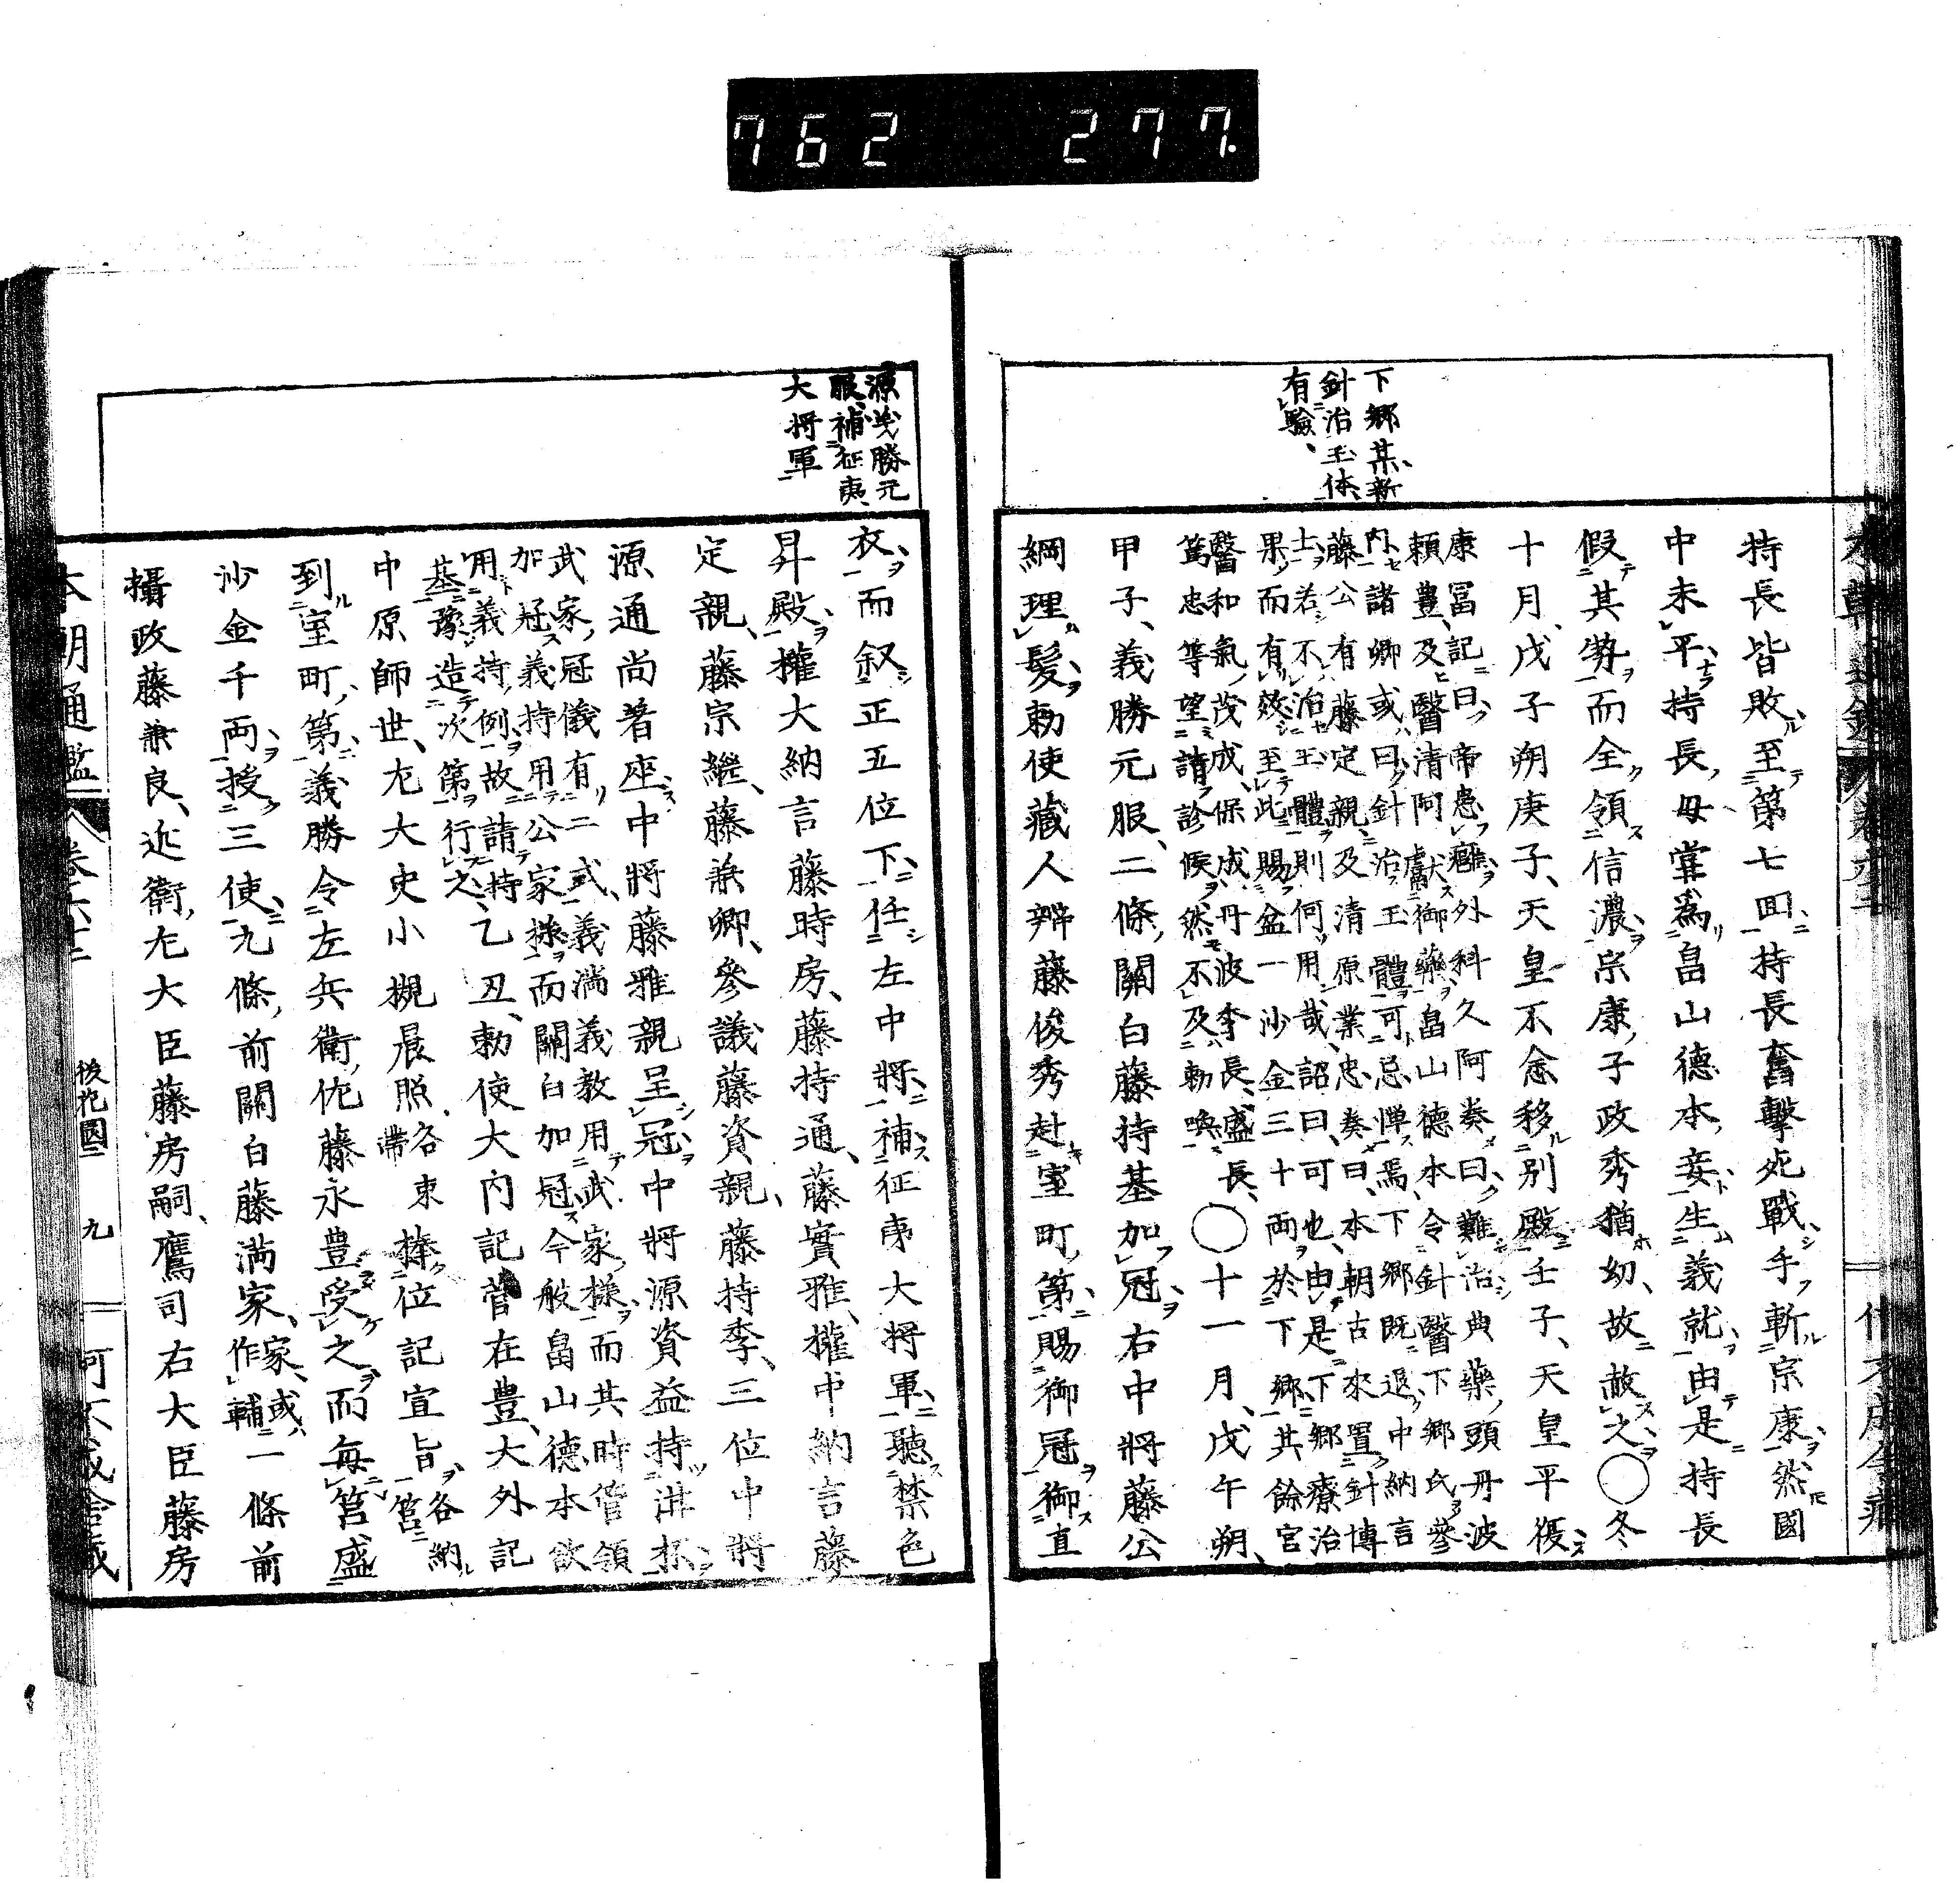 762 277.
下郷某、新
針治玉体、
有驗、
持長皆敗、至第七回、持長奮擊死戰、手斬宗康、然國
中未平、持長、母甞為畠山德本、妾、生義就、由是持長
假其勢、而全領信濃、宗康、子政秀猶幼、故敵之、○冬
十月、戊子朔庚子、天皇不悆移別殿、壬子、天皇平復、
康冨記曰、帝患癰、外科久阿奏曰、難治、典藥頭丹波
賴豊、及醫清阿獻御藥、畠山德本令針醫下郷氏參
内、諸卿或曰、針治玉體可忌憚焉、下郷既退、中納言
藤公有藤定親、及清原業忠、奏曰、本朝古來置針博
士、若不治玉體則何用哉、詔曰、可也、由是下郷療治
果而有效、至此賜盆一沙金三十両於下郷、其餘官
醫和氣茂成、保成、丹波季長、盛長、
篤忠等望請診候、然不及勅喚、○十一月、戊午朔、
甲子、義勝元服、二條關白藤持基加冠、右中將藤公
綱理髪、勅使藏人辨藤俊秀赴室町、第賜御冠御直
源義勝元
服、補征夷
大将軍
衣、而叙正五位下、任左中將、補征夷大将軍、聽禁色
昇殿、權大納言藤時房、藤持通、藤實雅、權中納言藤
定親、藤宗繼、藤兼卿、參議藤資親、藤持季、三位中將
源通尚著座、中將藤雅親呈冠、中將源資益持泔坏、
武家冠儀有二式、義満義教用武家樣、而其時管領
加冠、義持用公家樣、而關白加冠、今般畠山德本欲
用義持例、故請持
基豫造次第行之、乙丑、勅使大内記菅在豊、大外記
中原師世、左大史小槻晨照、各束帶捧位記宣旨、各納筥
到室町、第義勝令左兵衛佐藤永豊受之、而每筥盛
沙金千両、授三使、九條前關白藤満家、家、或作輔、一條前
攝政藤兼良、近衛左大臣藤房嗣、鷹司右大臣藤房
本朝通鑑 卷六十二 後花園二 九